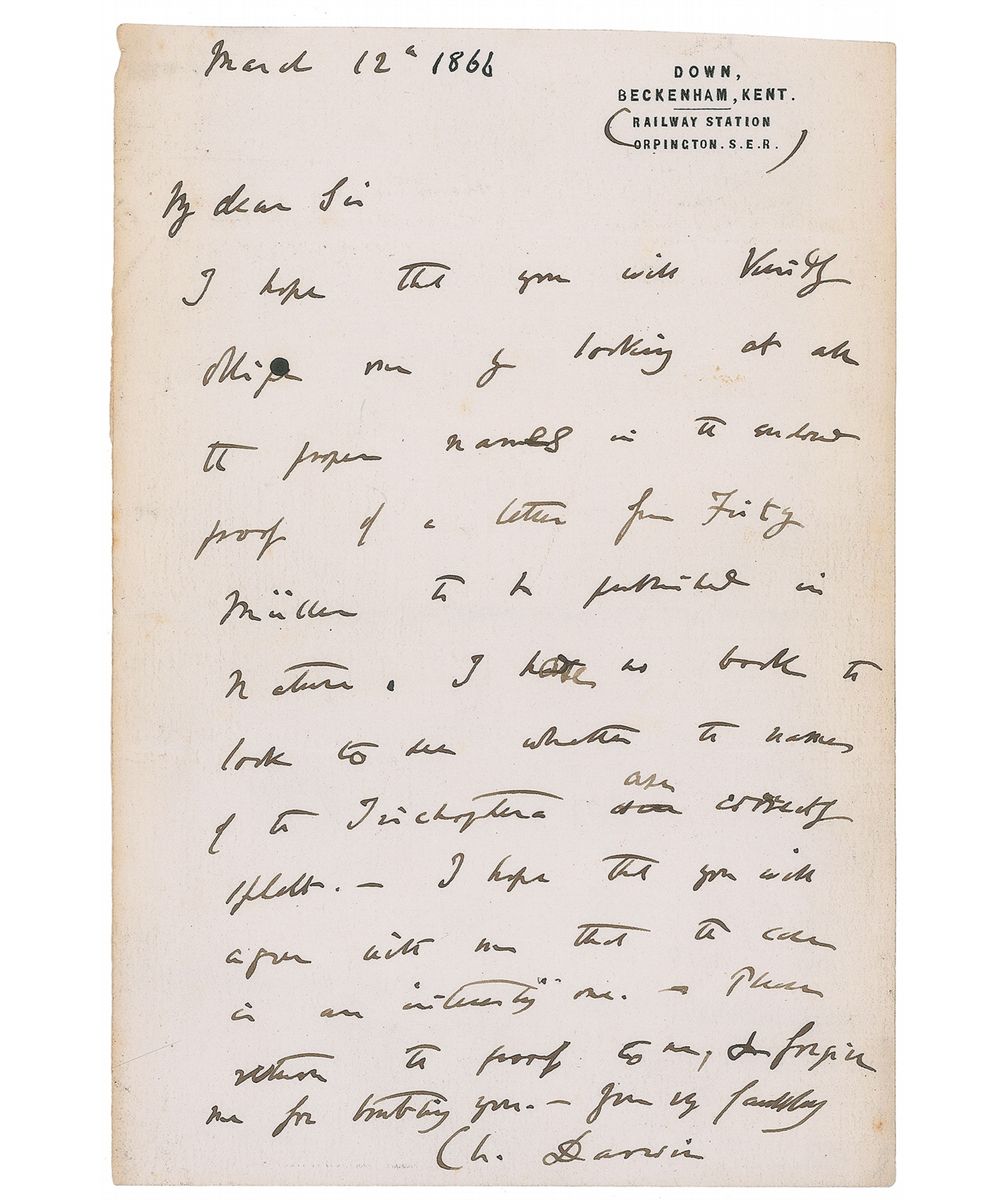 March 12th 1866
DOWN,
BECKENHAM, KENT.
(RAILWAY STATION
ORPINGTON. S.E.R.)
My dear Sir
I hope that you will kindly
oblige me by looking at all
the proper names in the enclosed
proof of a letter from Fritz
Müller to be published in
Nature. I have no book to
look to see whether the names
of the Trichoptera are correctly
spelt. — I hope that you will
agree with me that the case
is an interesting one. — Please
return the proof to me, & forgive
me for troubling you. — Yours very faithfully
Ch. Darwin